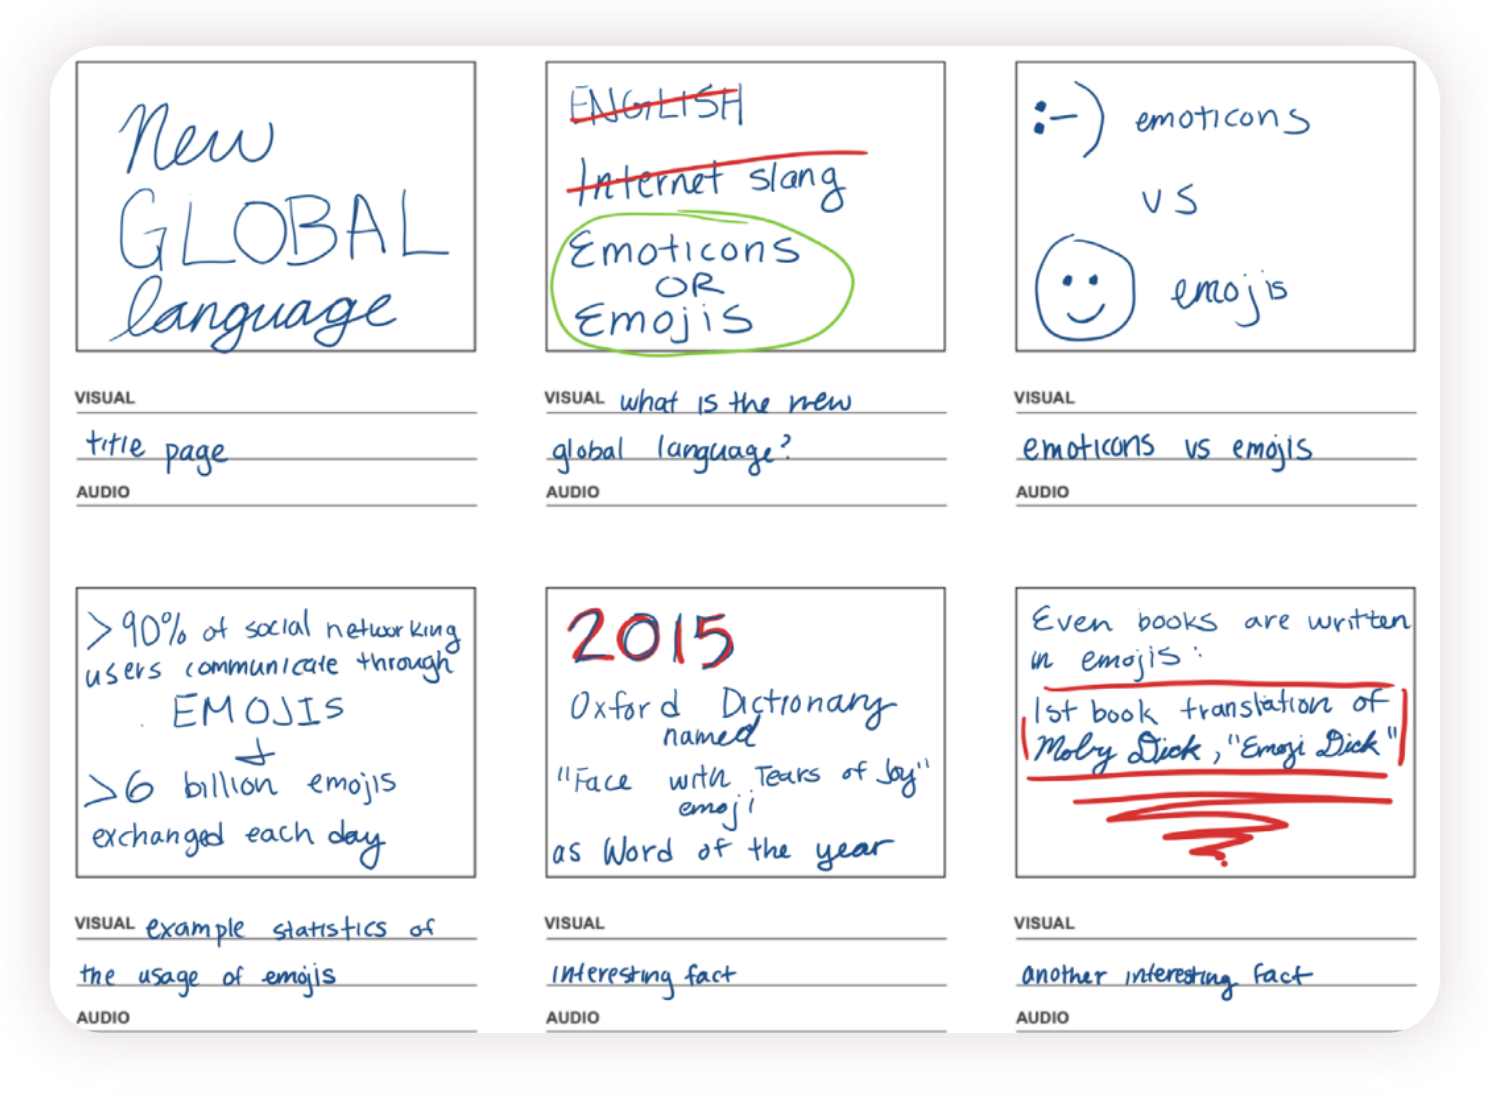 New
GLOBAL
language
VISUAL
title page
AUDIO
ENGLISH
Internet slang
Emoticons
OR
Emojis
VISUAL what is the new
global language?
AUDIO
:-) emoticons
vs
emojis
VISUAL
emoticons vs emojis
AUDIO
>90% of social networking
users communicate through
EMOJIS
+
>6 billion emojis
exchanged each day
VISUAL example statistics of
the usage of emojis
AUDIO
2015
Oxford Dictionary
named
"Face with Tears of Joy"
emoji
as Word of the year
VISUAL
interesting fact
AUDIO
Even books are written
in emojis:
1st book translation of
Moby Dick, "Emoji Dick"
VISUAL
another interesting fact
AUDIO